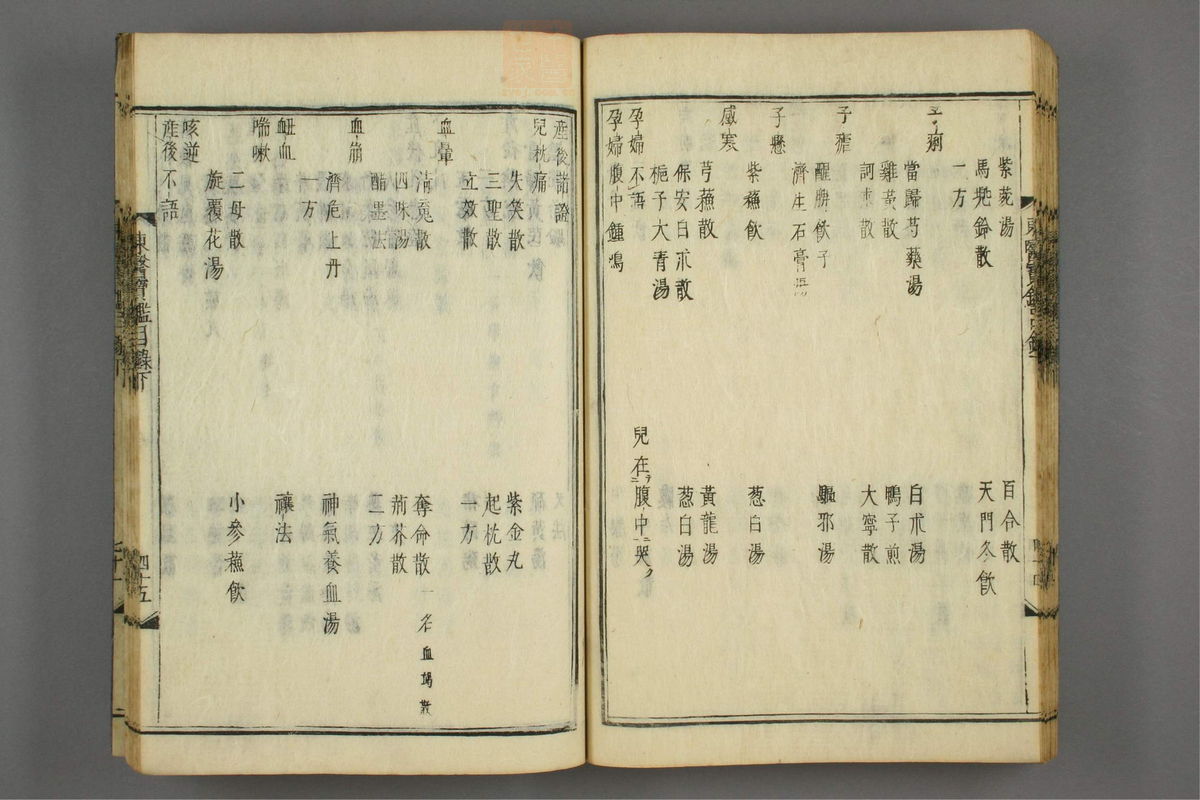 紫菀湯 百合散
馬兜鈴散 天門冬飮
一方
子痢
當歸芍藥湯 白朮湯
雞黃散 鴨子煎
訶朮散 大寧散
子瘧
醒脾飮子 驅邪湯
濟生石膏湯
子懸
紫蘓飮 葱白湯
感寒
芎蘓散 黃龍湯
保安白朮散 葱白湯
梔子大青湯
孕婦不語 兒在腹中哭
孕婦腹中鍾鳴
產後諸證
兒枕痛
失笑散 紫金丸
三聖散 起枕散
立效散 一方
血暈
淸魂散 奪命散 一名血竭散
四味湯 荊芥散
醋墨法 二方
血崩
濟危上丹 神氣養血湯
一方
衄血 禳法
喘嗽
二母散 小參蘓飮
旋覆花湯
咳逆
產後不語
東醫寶鑑目錄下 四十五